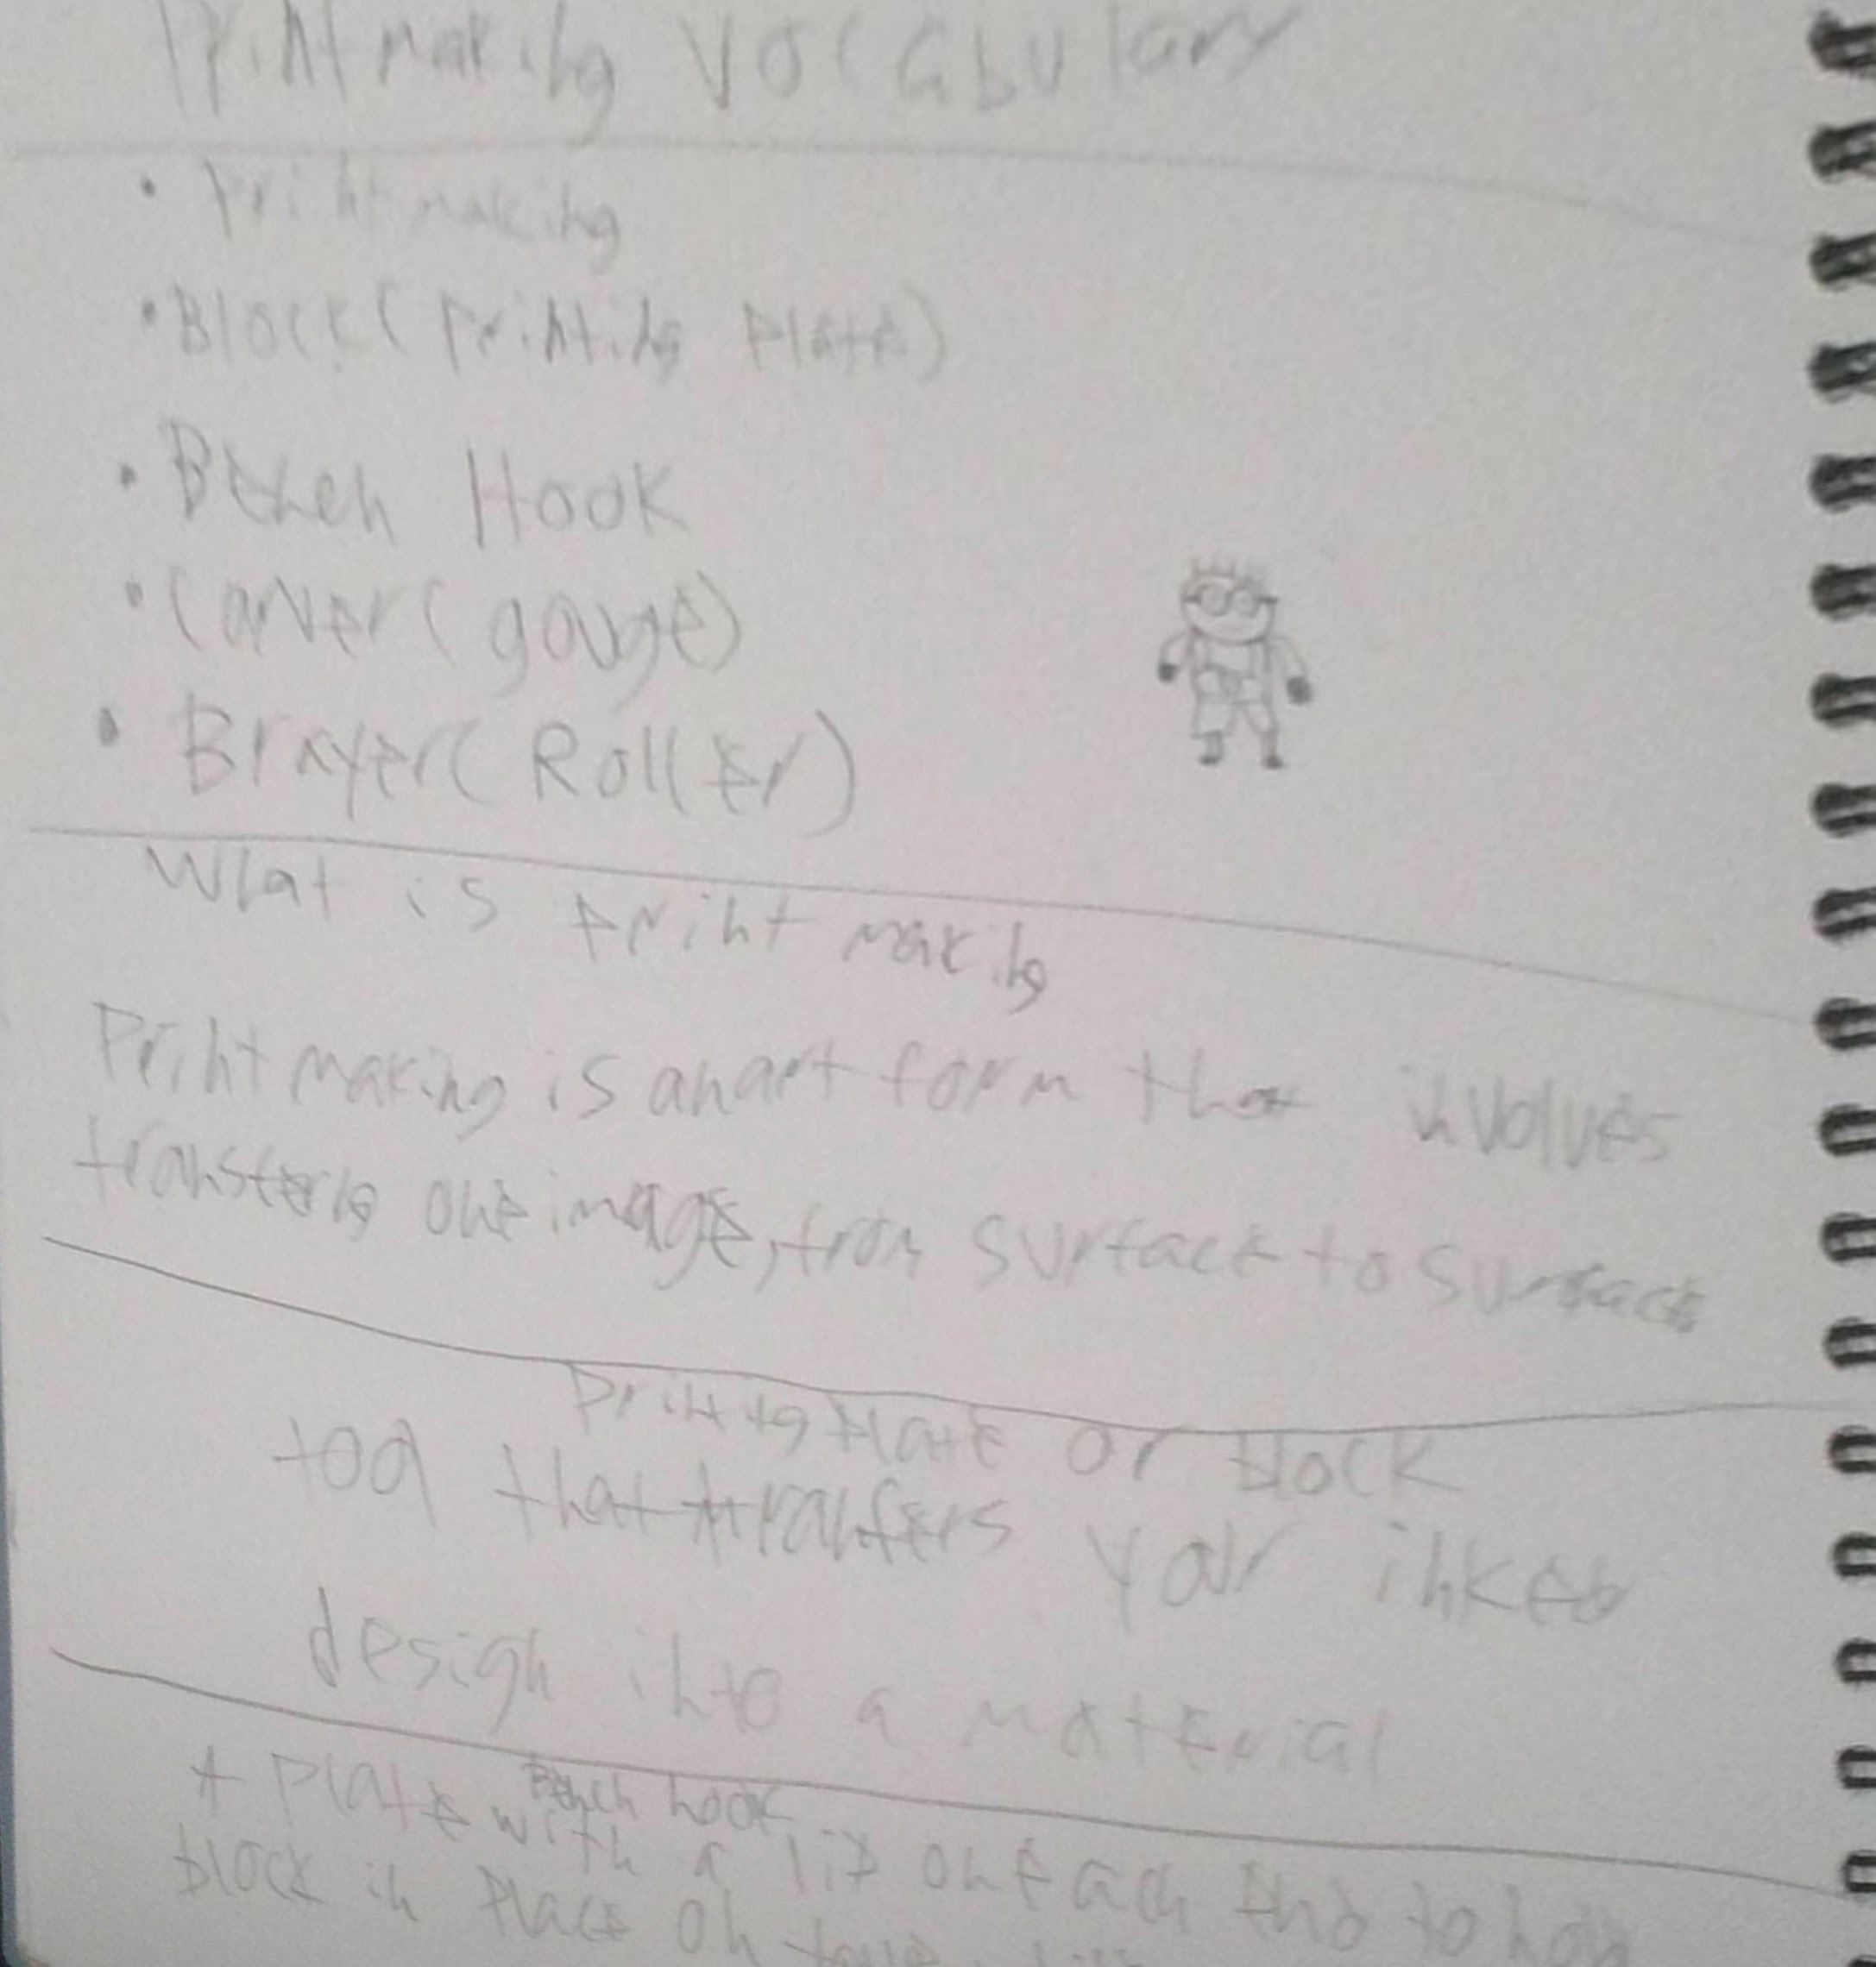 Printmaking Vocabulary
• Printmaking
• Block (Printing Plate)
• Bench Hook
• Carver (gouge)
• Brayer (Roller)
What is Print making
Printmaking is an art form that involves
transfering one image, from surface to surface
Printing Plate or block
tool that tranfers your inked
design into a material
Bench hook
A plate with a lip on each end to hold
block in place on